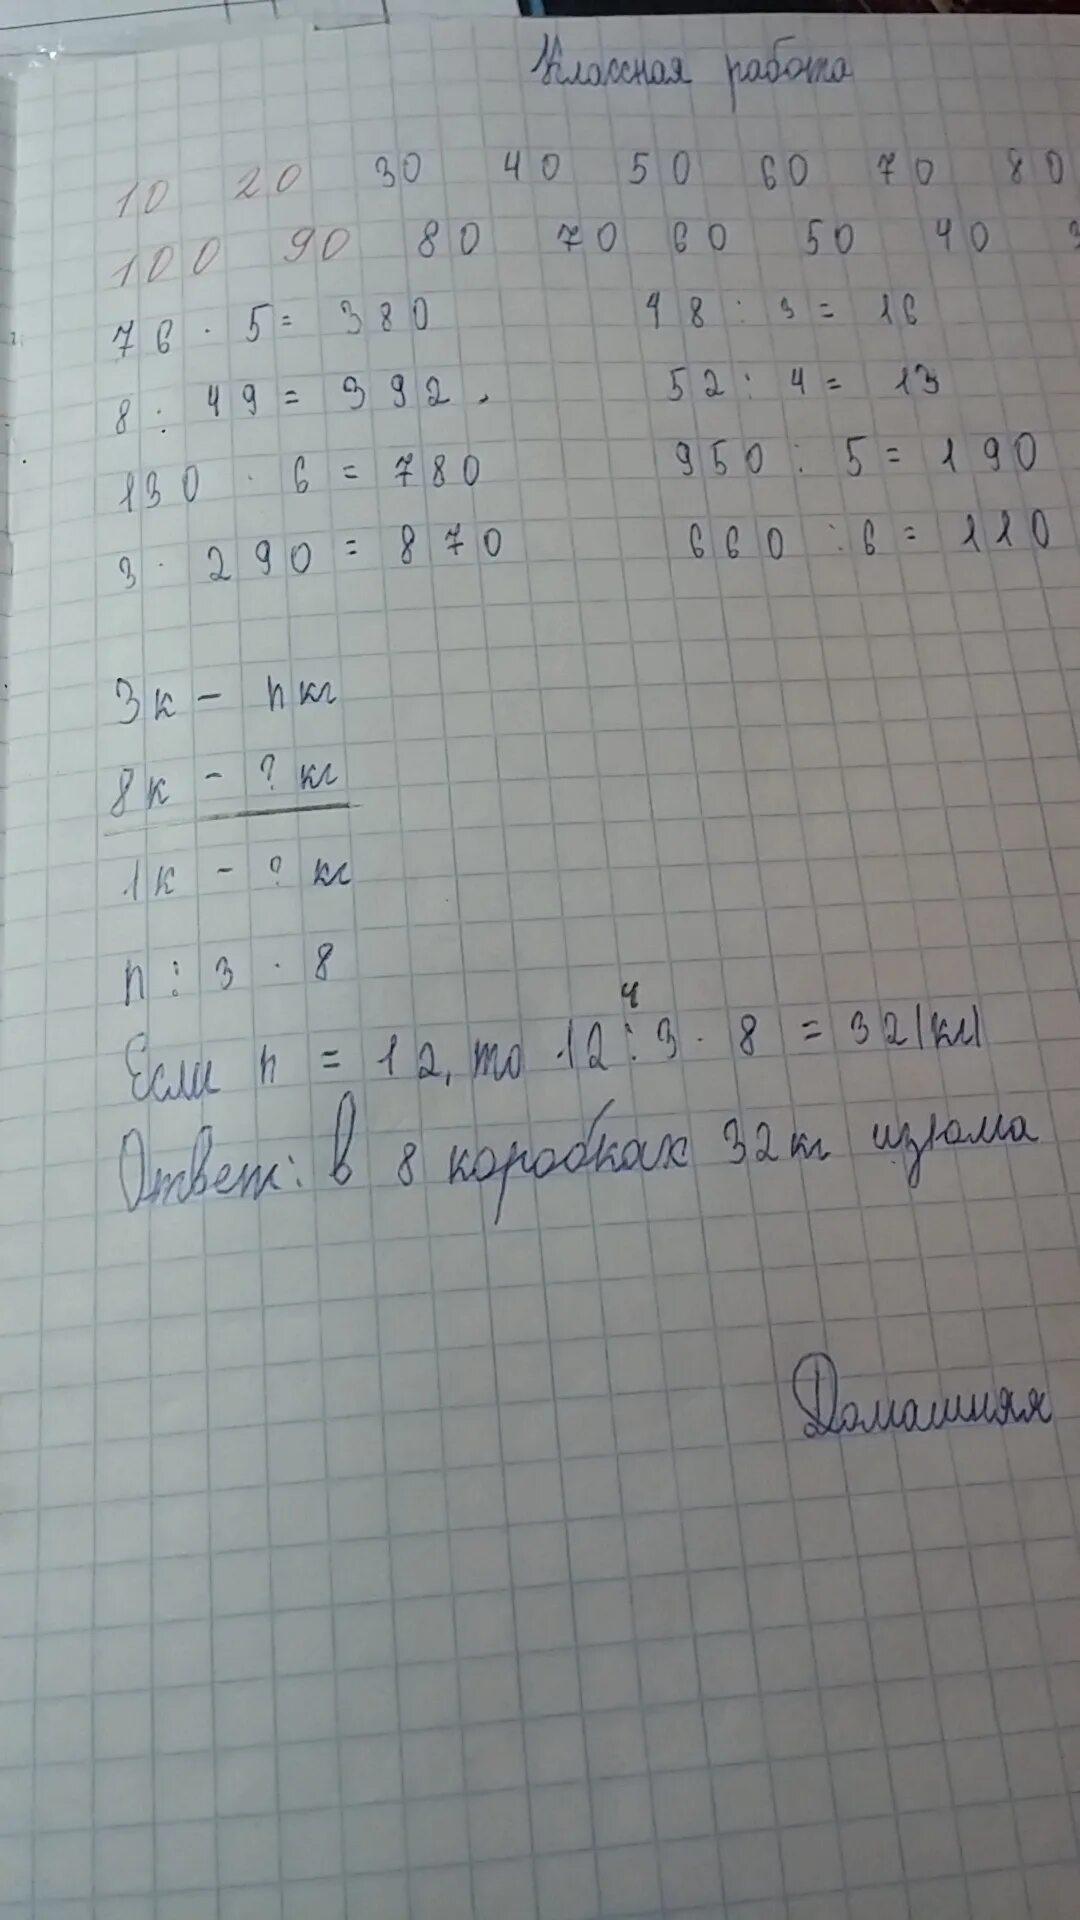 Классная работа
10 20 30 40 50 60 70 80
100 90 80 70 60 50 40 3
76 · 5 = 380 48 : 3 = 16
8 : 49 = 392. 52 : 4 = 13
130 · 6 = 780 950 : 5 = 190
3 · 290 = 870 660 : 6 = 110
3к – n кг
8к – ? кг
1к – ? кг
n : 3 · 8
4
Если n = 12, то 12 : 3 · 8 = 32 (кг)
Ответ: в 8 коробках 32 кг изюма
Домашняя